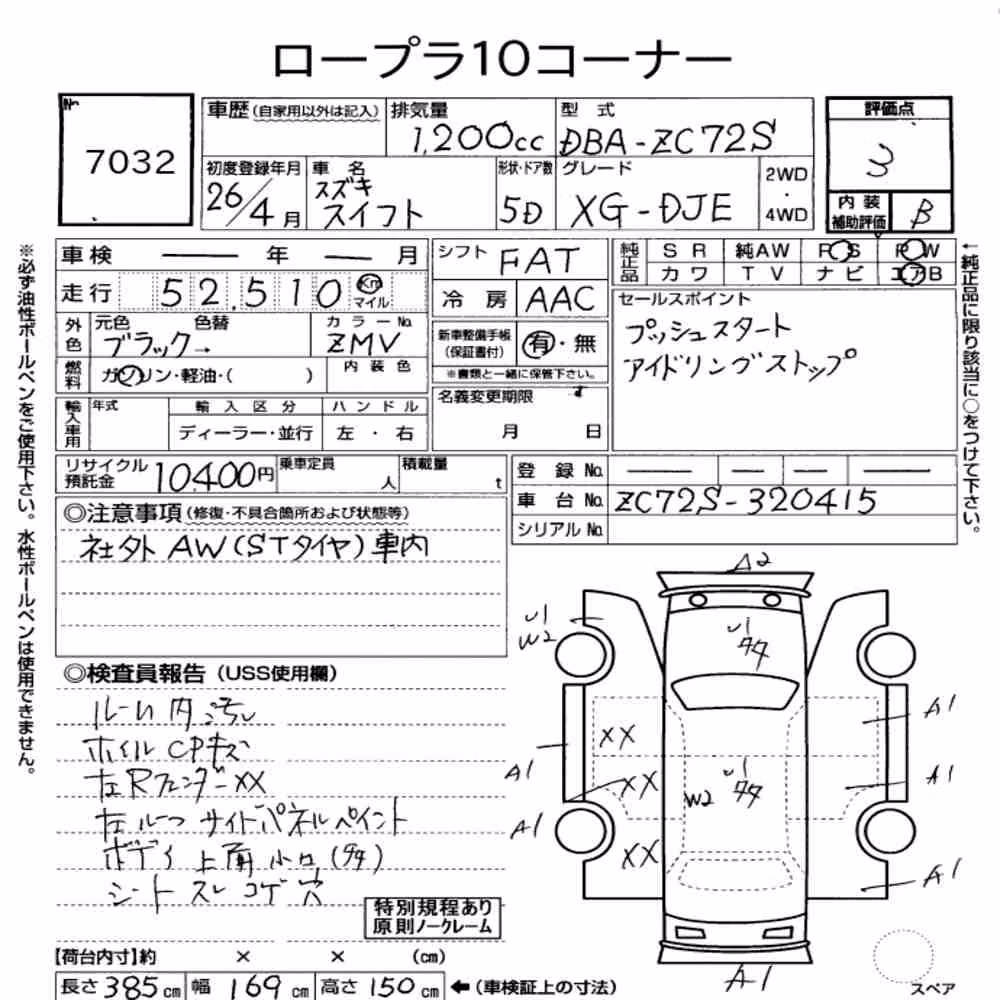 ロープラ10コーナー
No.
7032
車歴(自家用以外は記入)
排気量
1,200cc
型 式
DBA-ZC72S
評価点
3
初度登録年月
26/4月
車 名
スズキ
スイフト
形状・ドア数
5D
グレード
XG-DJE
2WD
・
4WD
内 装
補助評価
B
※必ず油性ボールペンをご使用下さい。水性ボールペンは使用できません。
車検 ― 年 ― 月
走行 52,510 Km
マイル
外色
元色 色替
ブラック→
カラーNo.
ZMV
燃料
ガソリン・軽油・( )
内 装 色
輸入車用
年式
輸 入 区 分
ディーラー・並行
ハ ン ド ル
左 ・ 右
シフト FAT
冷 房 AAC
新車整備手帳
(保証書付)
有・無
※書類と一緒に保管下さい。
名義変更期限
月 日
純正品
S R 純AW P S P W
カ ワ T V ナ ビ エアB
セールスポイント
プッシュスタート
アイドリングストップ
←純正品に限り該当に○をつけて下さい。
リサイクル
預託金
10400円
乗車定員
人
積載量
t
登 録 No. ― ― ― ―
車 台 No. ZC72S-320415
シリアル No.
◎注意事項(修復・不具合箇所および状態等)
社外AW(STタイヤ)車内
◎検査員報告(USS使用欄)
ルーム内汚れ
ホイルCPキズ
左RフェンダーXX
左ルーフサイドパネルペイント
ボディ上面小凹(タタ)
シートスレコゲ穴
特別規程あり
原則ノークレーム
A2
U1
W2
U1
タタ
XX
A1
A1
XX
W2
U1
タタ
A1
A1
XX
A1
A1
スペア
【荷台内寸】約 × × (cm)
長さ385cm 幅169cm 高さ150cm ←(車検証上の寸法)